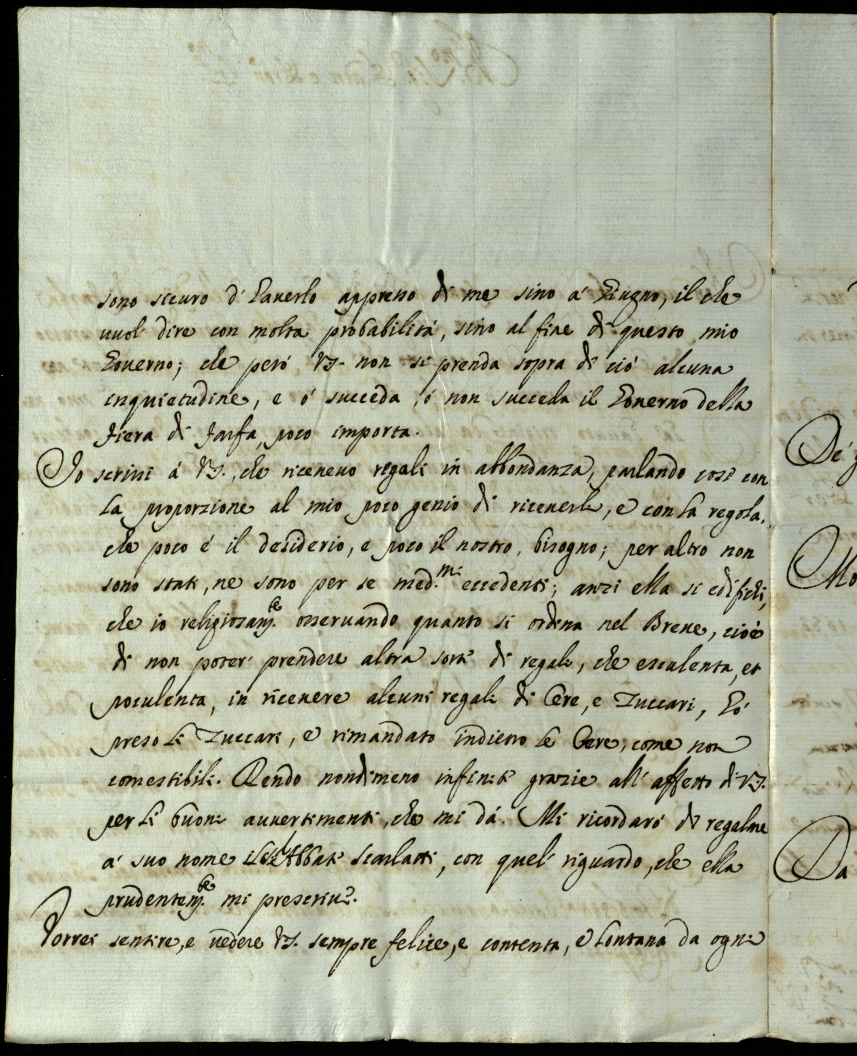 sono sicuro d'haverlo appresso di me sino à Giugno, il che
vuol dire con molta probabilità, sino al fine di questo mio
Governo; che però V.S. non si prenda sopra di ciò alcuna
inquietudine, e ò succeda, ò non succeda il Governo della
fiera di Farfa, poco importa.
Io scrissi à V.S., che ricevevo regali in abbondanza, parlando così con
la proporzione al mio poco genio di riceverli, e con la regola,
che poco è il desiderio, e poco il nostro bisogno; per altro non
sono stati, ne sono per se med.mi eccedenti; anzi ella si edifichi,
che io religiosam.te osservando quanto si ordina nel Breve, cioè
di non poter prendere altra sorte di regali, che esculenta, et
poculenta, in ricevere alcuni regali di Cere, e Zuccari, hò
preso li Zuccari, e rimandato indietro le Cere, come non
comestibili. Rendo nondimeno infinite grazie all'affetto di V.S.
per li buoni avvertimenti, che mi dà. Mi ricordarò di regalare
à suo nome Abbate Scarlatti, con quel riguardo, che ella
prudentem.te mi prescrive.
Vorrei sentire, e vedere V.S. sempre felice, e contenta, e lontana da ogni
De
Mo
Da